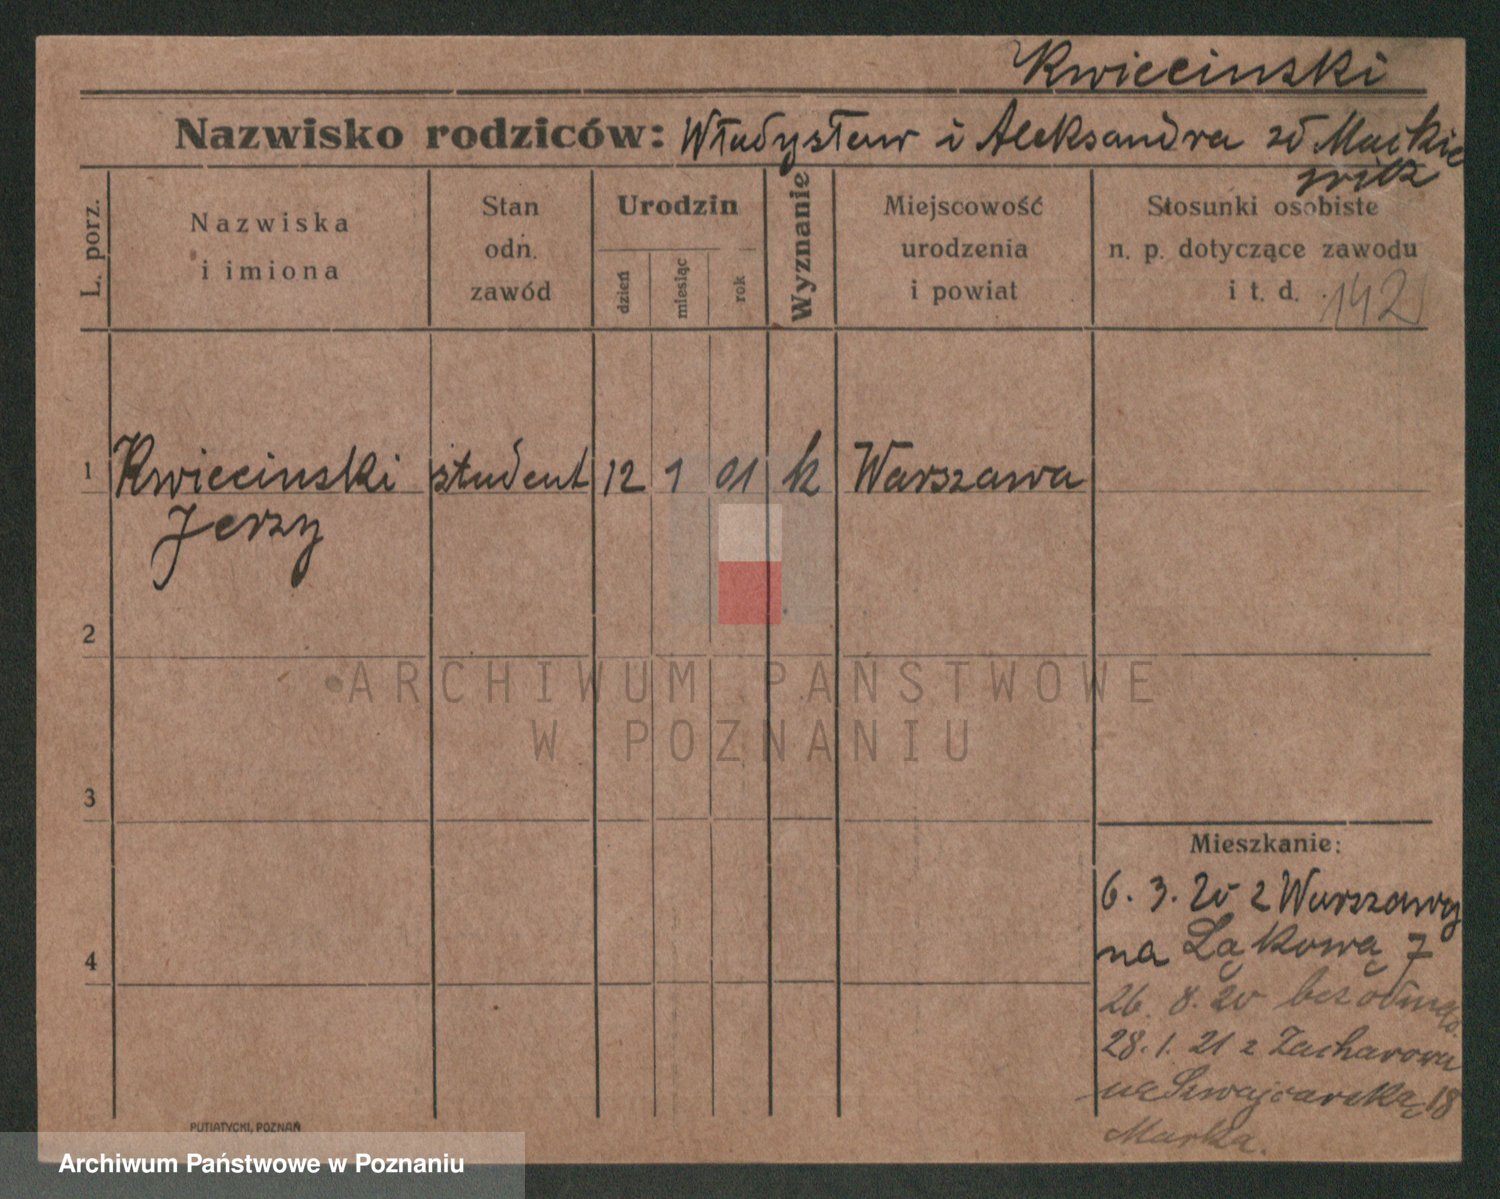 Kwiecinski
Nazwisko rodziców: Władysław i Aleksandra zd Mackie
wicz
L. porz.
Nazwiska
i imiona
Stan
odn.
zawód
Urodzin
dzień
miesiąc
rok
Wyznanie
Miejscowość
urodzenia
i powiat
Stosunki osobiste
n. p. dotyczące zawodu
i t. d.
142
1 Kwiecinski student 12 1 01 k Warszawa
Jerzy
2
3
4
Mieszkanie:
6. 3. 20 z Warszawy
na Łąkową 7
26. 8. 20 bez
28. 1. 21 z
na Szwajcarską 18
PUTIATYCKI, POZNAŃ
ARCHIWUM PAŃSTWOWE
W POZNANIU
Archiwum Państwowe w Poznaniu